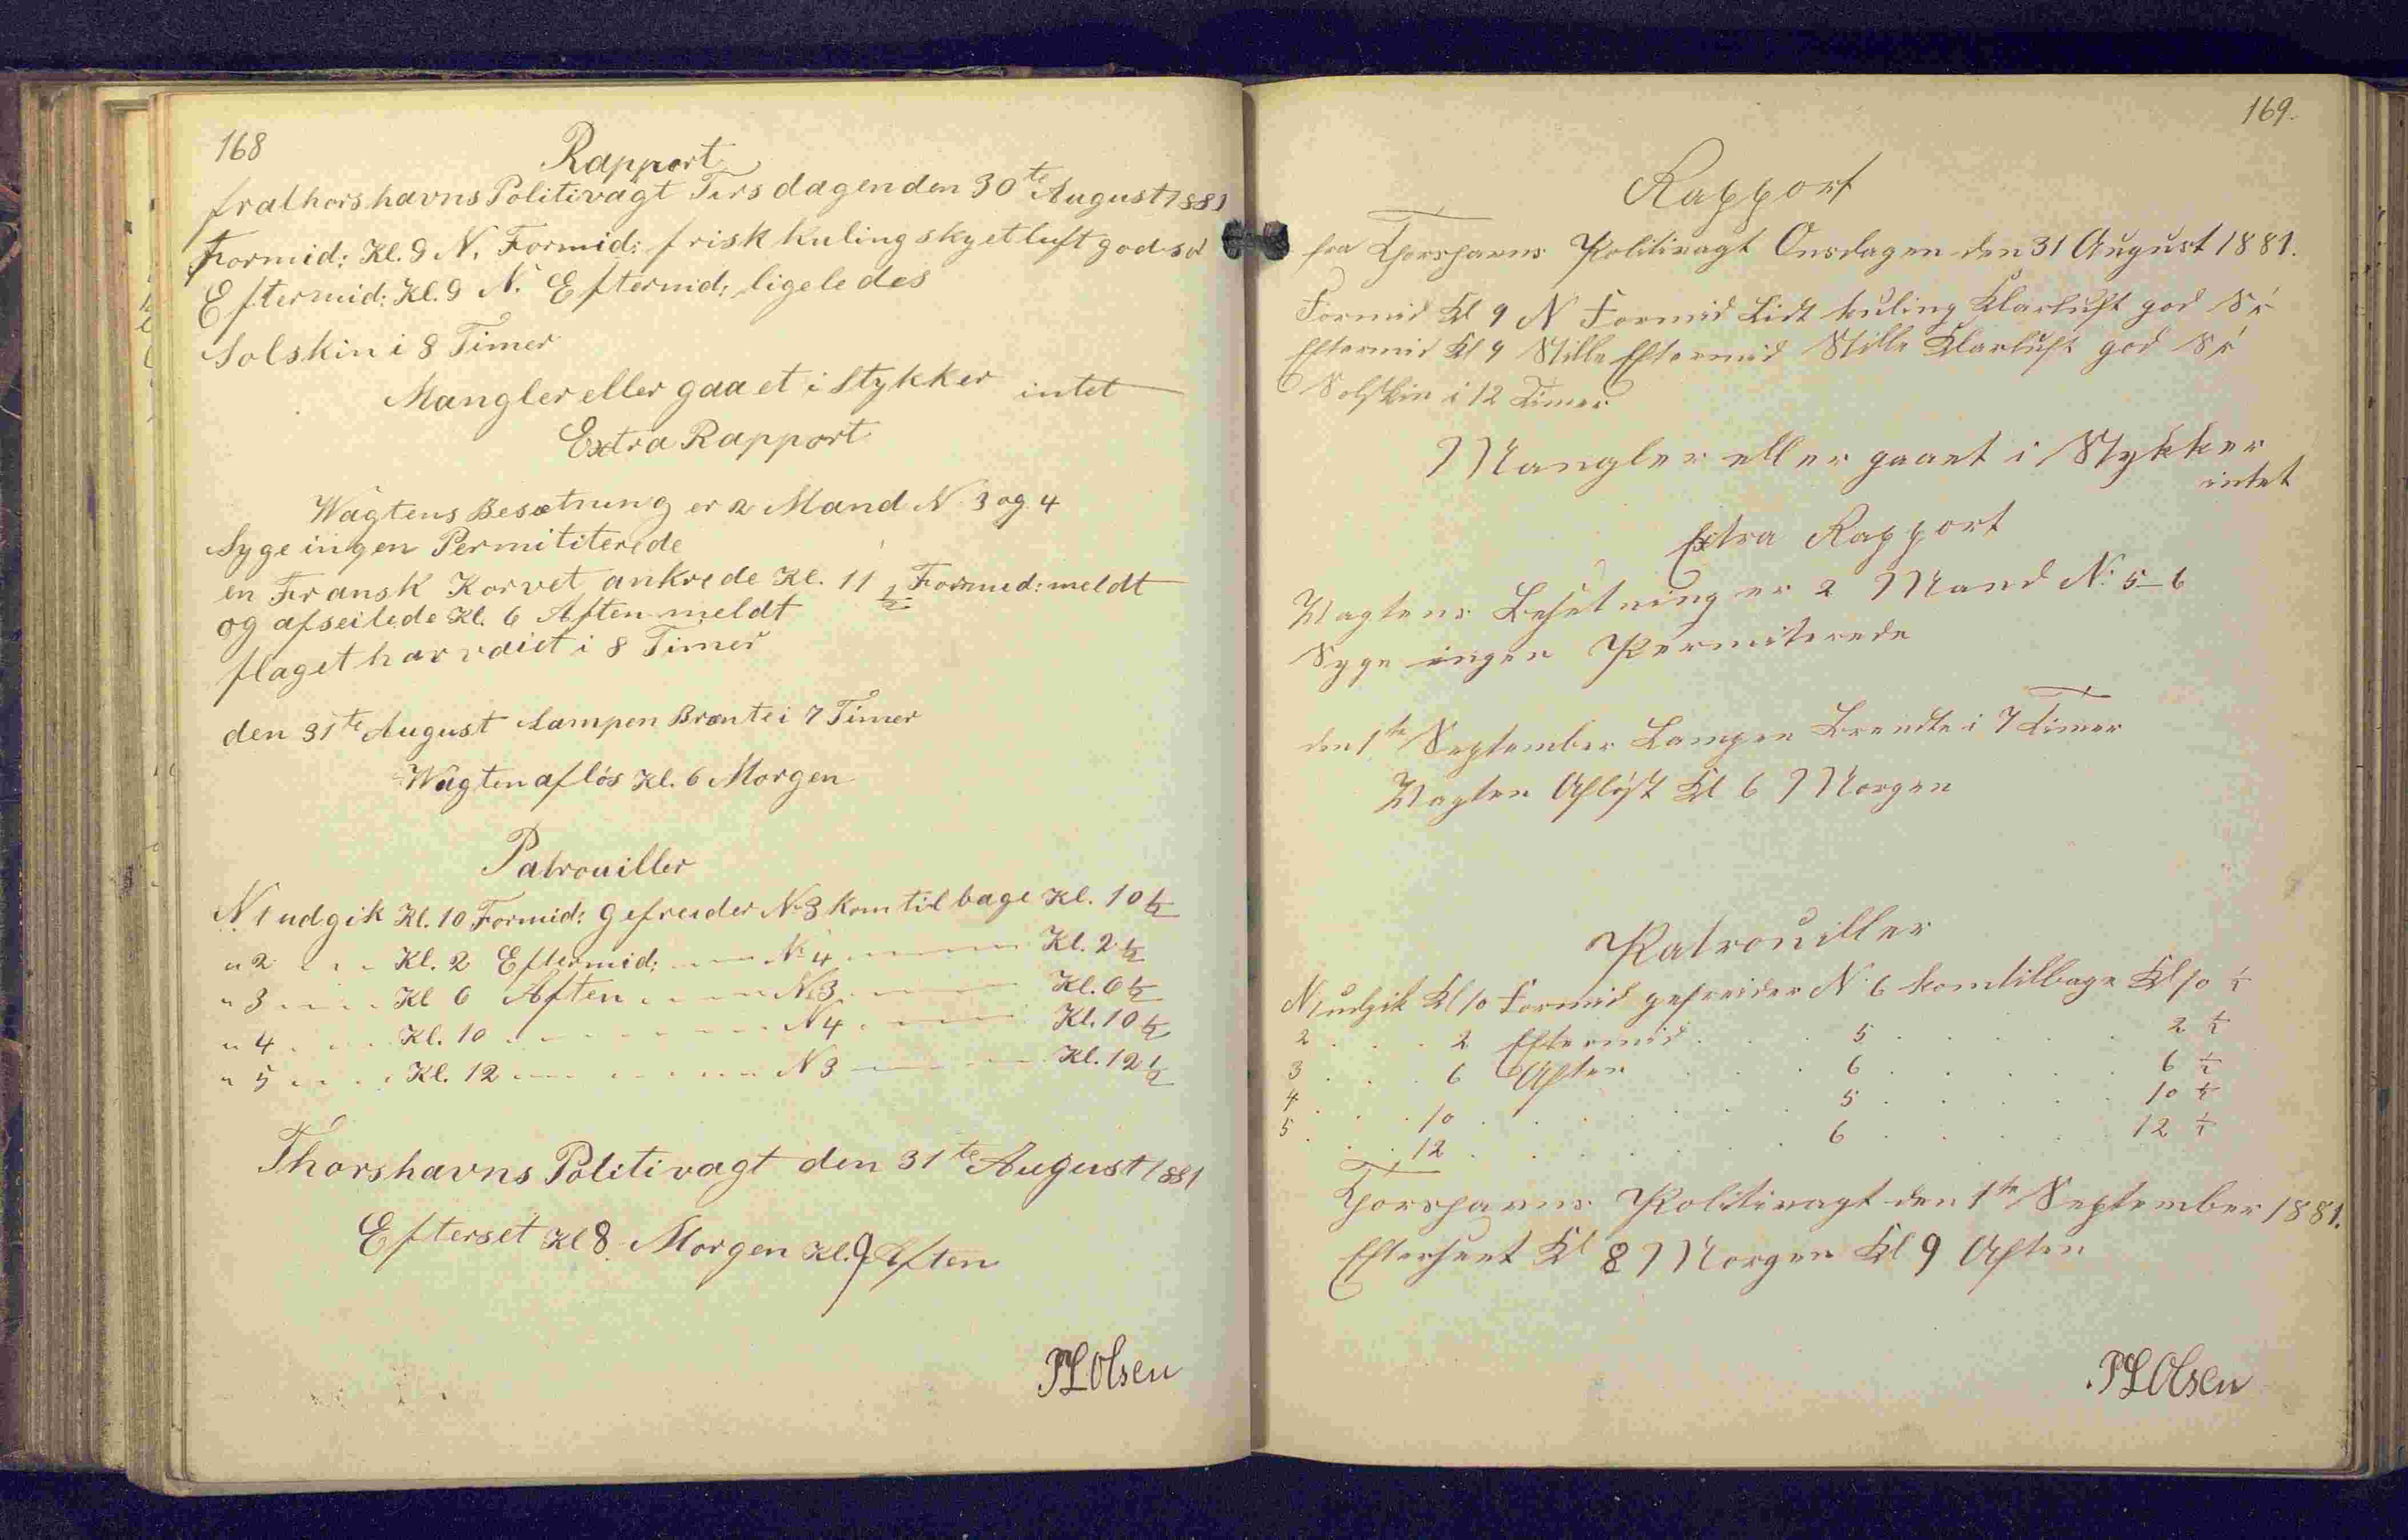 168
Rapport
fra Thorshavns Politivagt Tirsdagen den 30te August 1881
Formid: Kl. 9 N. Formid: frisk kuling skyet luft god sø
Eftermid: Kl. 9 N. Eftermid: ligeledes
Solskin i 8 Timer
Mangler eller gaaet i Stykker intet
Extra Rapport
Wagtens Besætning er 2 Mand N. 3 og 4
Syge ingen Permititerede
en Fransk Korvet ankrede Kl. 11 1/2 Formid: meldt
og afseilede Kl. 6 Aften meldt
flaget har vaiet i 8 Timer
den 31te August Lampen Brænte i 7 Timer
Wagten afløs Kl. 6 Morgen
Patrouiller
N. 1 udgik Kl. 10 Formid: Gefreider N. 3 kom tilbage Kl. 10 1/2
" 2 " " " Kl. 2 Eftermid: " " N. 4 " " " Kl. 2 1/2
" 3 " " " Kl 6 Aften " " " N. 3 " " " Kl. 6 1/2
" 4 " " " Kl. 10 " " " " N 4 " " " Kl. 10 1/2
" 5 " " " Kl. 12 " " " " N 3 " " " Kl. 12 1/2
Thorshavns Politivagt den 31te August 1881
Efterset Kl 8 Morgen Kl. 9 Aften
PLOlsen
169.
Rapport
fra Thorshavns Politivagt Onsdagen den 31 August 1881.
Formid Kl 9 N Formid Lidt kuling Klarluft god Sø
Eftermid Kl 9 Stille Eftermid Stille Klarluft god Sø
Solskin i 12 Timer
Mangler eller gaaet i Stykker
intet
Extra Rapport
Wagtens Besetning er 2 Mand N: 5-6
Syge ingen Permiterede
den 1te September Lampen Brendte i 7 Timer
Wagten Afløst Kl 6 Morgen
Patrouiller
N 1 udgik Kl 10 Formid gefreider N. 6 kom tilbage Kl 10 1/2
2 . . . 2 Eftermid . . . 5 . . . . 2 1/2
3 . . . 6 Aften . . . 6 . . . . 6 1/2
4 . . . 10 . . . . 5 . . . . 10 1/2
5 . . . 12 . . . . 6 . . . . 12 1/2
Thorshavns Politivagt den 1te September 1881.
Efterseet Kl 8 Morgen Kl 9 Aften
PLOlsen